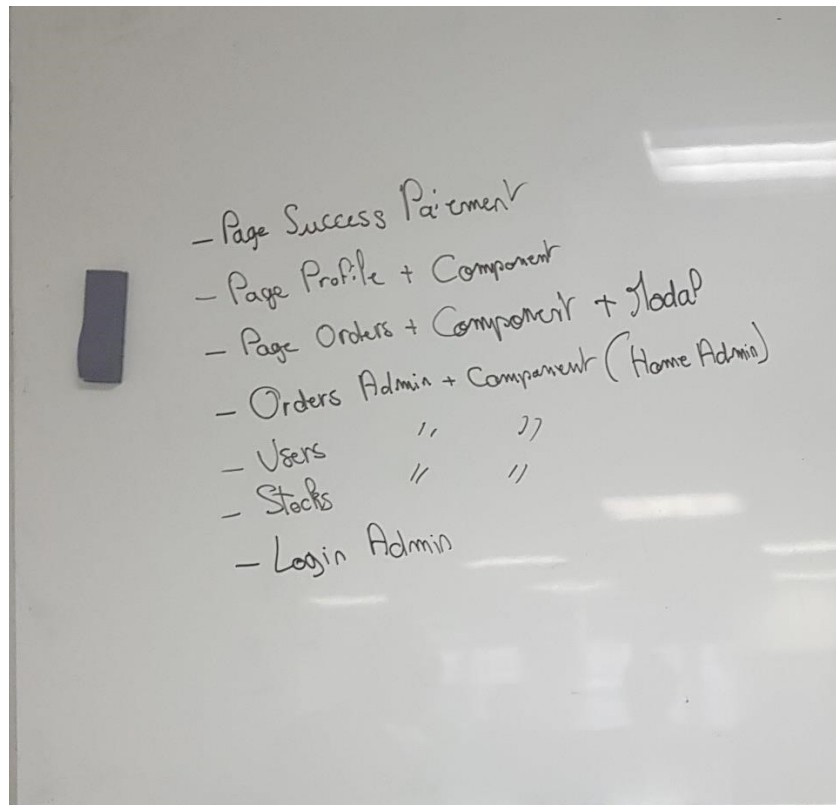 - Page Success Paiement
- Page Profile + Component
- Page Orders + Component + Modal
- Orders Admin + Component (Home Admin)
- Users " "
- Stocks " "
- Login Admin